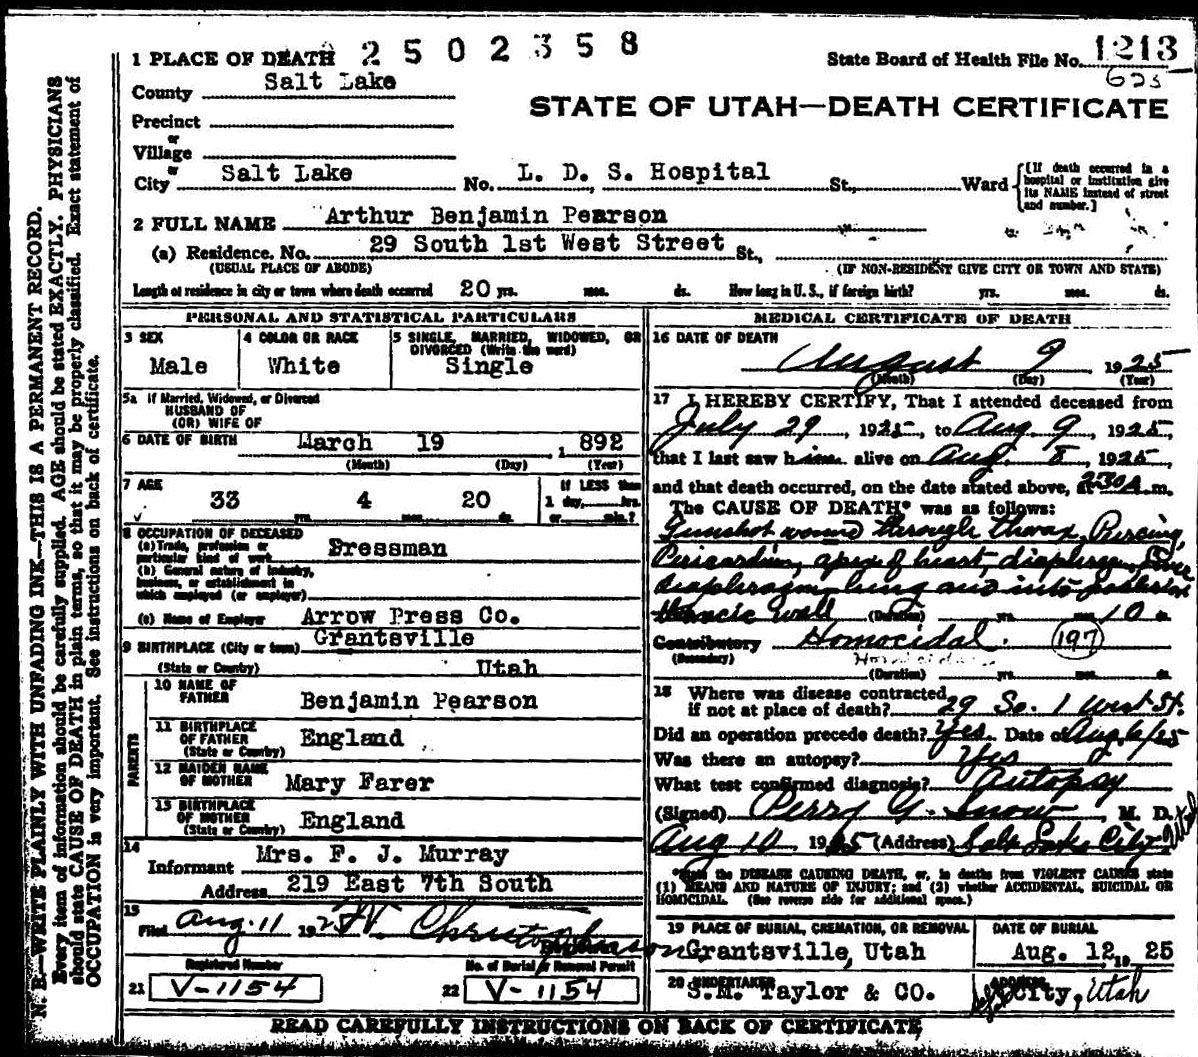 1 PLACE OF DEATH 2502358
State Board of Health File No. 1213
625
County Salt Lake
STATE OF UTAH—DEATH CERTIFICATE
Precinct
or
Village
or
City Salt Lake No. L. D. S. Hospital St., Ward
[If death occurred in a
hospital or institution give
its NAME instead of street
and number.]
2 FULL NAME Arthur Benjamin Pearson
(a) Residence. No. 29 South 1st West Street St.,
(USUAL PLACE OF ABODE) (IF NON-RESIDENT GIVE CITY OR TOWN AND STATE)
Length of residence in city or town where death occurred 20 yrs. mos. ds. How long in U. S., if foreign birth? yrs. mos. ds.
PERSONAL AND STATISTICAL PARTICULARS
3 SEX
Male
4 COLOR OR RACE
White
5 SINGLE, MARRIED, WIDOWED, OR
DIVORCED (Write the word)
Single
5a If Married, Widowed, or Divorced
HUSBAND OF
(OR) WIFE OF
6 DATE OF BIRTH March 19 , 1892
(Month) (Day) (Year)
7 AGE
33 yrs. 4 mos. 20 ds.
If LESS than
1 day, hrs.
or min.?
8 OCCUPATION OF DECEASED
(a) Trade, profession or
particular kind of work Pressman
(b) General nature of industry,
business, or establishment in
which employed (or employer)
(c) Name of Employer Arrow Press Co.
9 BIRTHPLACE (City or town) Grantsville
(State or Country) Utah
PARENTS
10 NAME OF
FATHER Benjamin Pearson
11 BIRTHPLACE
OF FATHER England
(State or Country)
12 MAIDEN NAME
OF MOTHER Mary Farer
13 BIRTHPLACE
OF MOTHER England
(State or Country)
14
Informant Mrs. F. J. Murray
Address 219 East 7th South
15
Filed Aug. 11 1925
Registered Number No. of Burial or Removal Permit
21 V-1154 22 V-1154
MEDICAL CERTIFICATE OF DEATH
16 DATE OF DEATH
August 9 1925
(Month) (Day) (Year)
17 I HEREBY CERTIFY, That I attended deceased from
July 29, 1925, to Aug. 9, 1925,
that I last saw him alive on Aug. 8, 1925,
and that death occurred, on the date stated above, at 230 A. m.
The CAUSE OF DEATH* was as follows:
Gunshot wound through thorax, Piercing,
Pericardium, apex of heart, diaphragm, liver
diaphragm, lung and into posterior
thoracic wall (Duration) yrs. mos. 10 ds.
Contributory Homocidal. 197
(Secondary) Homicidal
(Duration) yrs. mos. ds.
18 Where was disease contracted
if not at place of death? 29 So. 1 West St.
Did an operation precede death? Yes. Date of Aug 6/25
Was there an autopsy? Yes
What test confirmed diagnosis? Autopsy
(Signed) Perry G. Snow, M. D.
Aug 10 1925 (Address) Salt Lake City, Utah
*State the DISEASE CAUSING DEATH, or, in deaths from VIOLENT CAUSES state
(1) MEANS AND NATURE OF INJURY; and (2) whether ACCIDENTAL, SUICIDAL OR
HOMICIDAL. (See reverse side for additional space.)
19 PLACE OF BURIAL, CREMATION, OR REMOVAL
Grantsville, Utah
DATE OF BURIAL
Aug. 12, 1925
20 UNDERTAKER
S.M. Taylor & CO.
ADDRESS
City, Utah
READ CAREFULLY INSTRUCTIONS ON BACK OF CERTIFICATE
N. B.—WRITE PLAINLY WITH UNFADING INK—THIS IS A PERMANENT RECORD.
Every item of information should be carefully supplied. AGE should be stated EXACTLY. PHYSICIANS
should state CAUSE OF DEATH in plain terms, so that it may be properly classified. Exact statement of
OCCUPATION is very important. See instructions on back of certificate.